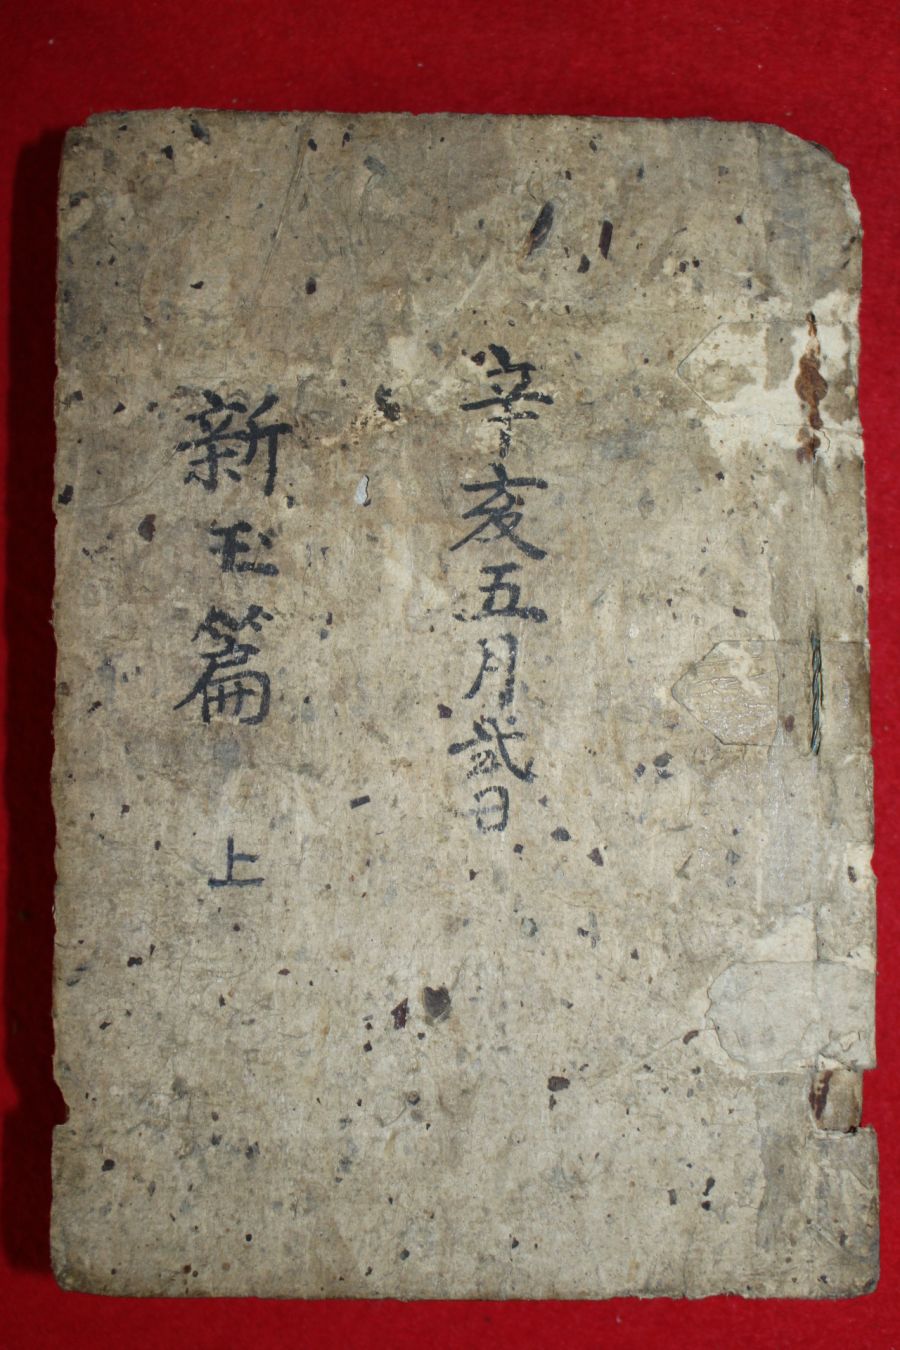 辛亥五月貳日
新玉篇 上